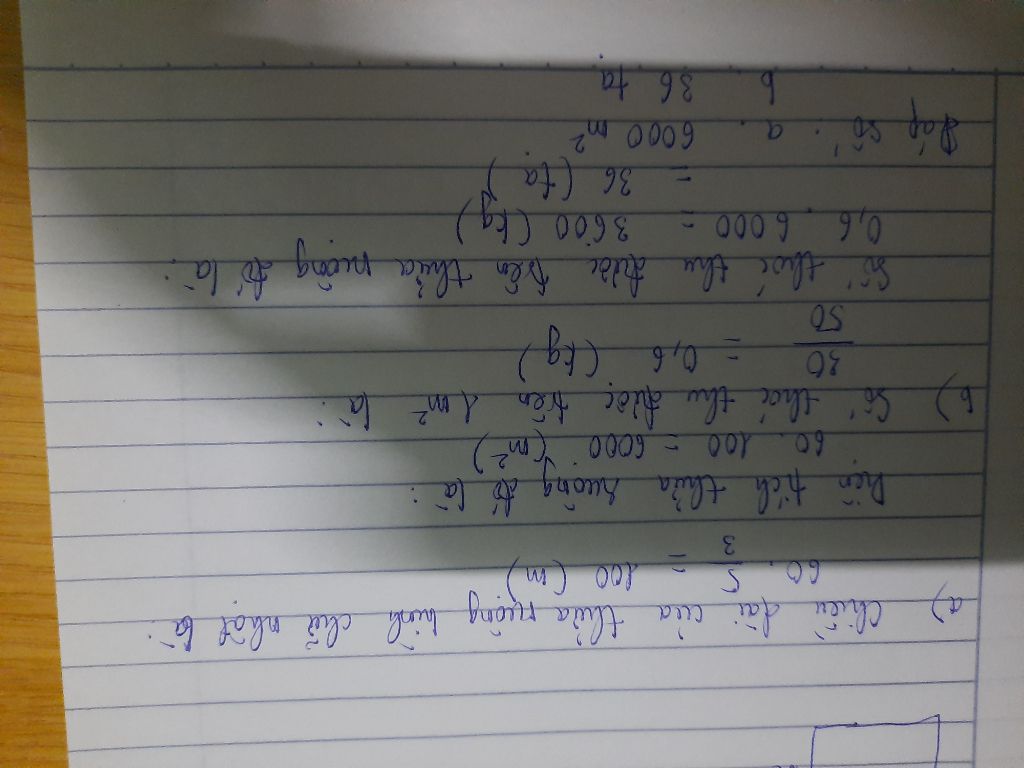 a) Chiều dài của thửa ruộng hình chữ nhật là:
60 . 5/3 = 100 (m)
Diện tích thửa ruộng đó là:
60 . 100 = 6000 (m²)
b) Số thóc thu được trên 1m² là:
30/50 = 0,6 (kg)
Số thóc thu được trên thửa ruộng đó là:
0,6 . 6000 = 3600 (kg)
= 36 (tạ)
Đáp số: a. 6000 m²
b. 36 tạ